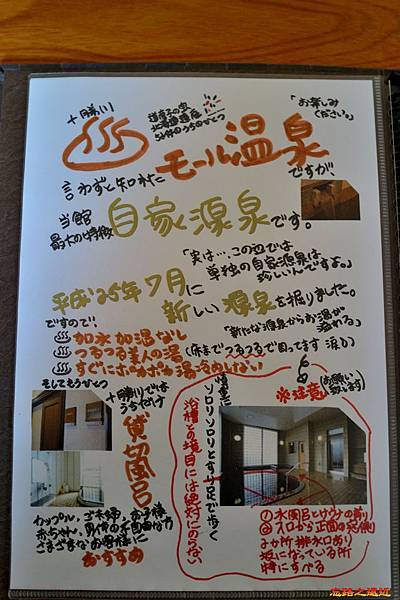 十勝川
道東子の宝
北海道遺産
54件のうちのひとつ
「お楽しみ
ください。」
モール温泉
ですが!
言わずと知れた
当館
最大の特徴
自家源泉です。
「実は…この辺では
単独の自家源泉は
珍しいんですよ。」
平成25年7月に
新しい源泉を掘りました。
ですので!
「新たな源泉からお湯が
溢れる」
加水加温なし
つるつる美人の湯
(床までつるつるで困ってます 涙)
すぐにホカホカ 湯冷めしない
そしてもうひとつ
十勝川では
うちだけ
貸切風呂
カップル、ご夫婦、お子様
赤ちゃん、
さまざまなお客様に
おすすめ
※注意
(お願い
致します)
慎重に
ソロリソロリとすり足で歩く
浴槽との境目には絶対にのらない
①水風呂とサウナの前り
②スロから正面の窓側
2か所 排水口あり
坂になっている所
特にすべる